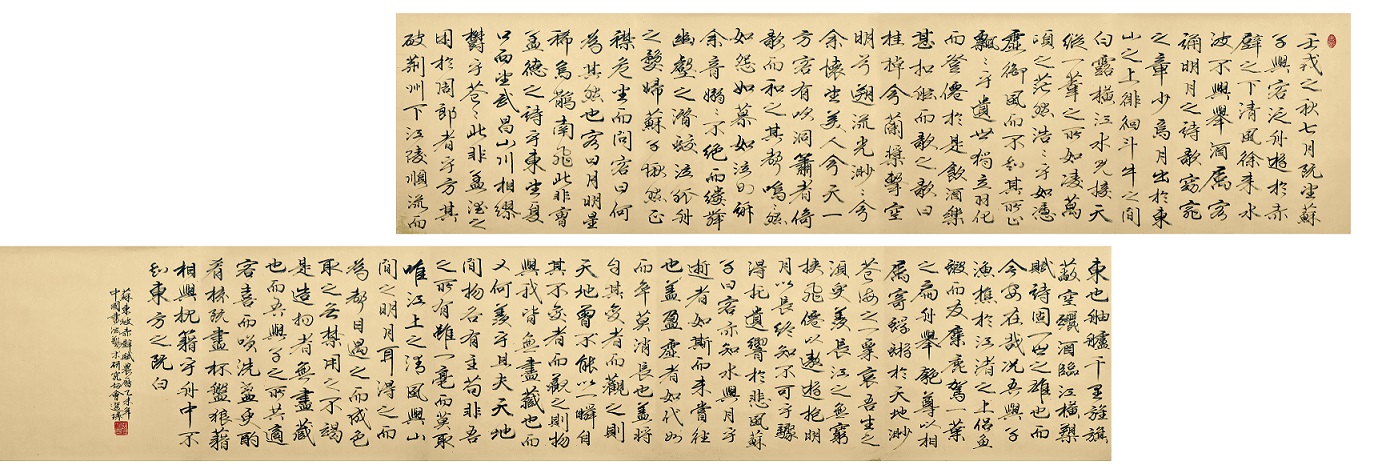 壬戌之秋七月既望蘇
子與客泛舟遊於赤
壁之下清風徐來水
波不興舉酒屬客
誦明月之詩歌窈窕
之章少焉月出於東
山之上徘徊斗牛之間
白露橫江水光接天
縱一葦之所如凌萬
頃之茫然浩浩乎如憑
虛御風而不知其所止
飄飄乎遺世獨立羽化
而登僊於是飲酒樂
甚扣舷而歌之歌曰
桂棹兮蘭槳擊空
明兮遡流光渺渺兮
余懷望美人兮天一
方客有吹洞簫者倚
歌而和之其聲嗚嗚然
如怨如慕如泣如訴
余音嫋嫋不絕而縷舞
幽壑之潛蛟泣孤舟
之嫠婦蘇子愀然正
襟危坐而問客曰何
為其然也客曰月明星
稀烏鵲南飛此非曹
孟德之詩乎東望夏
口西望武昌山川相繆
鬱乎蒼蒼此非孟德之
困於周郎者乎方其
破荊州下江陵順流而
東也舳艫千里旌旗
蔽空釃酒臨江橫槊
賦詩固一世之雄也而
今安在哉況吾與子
漁樵於江渚之上侶魚
蝦而友麋鹿駕一葉
之扁舟舉匏尊以相
屬寄蜉蝣於天地渺
蒼海之一粟哀吾生之
須臾羨長江之無窮
挾飛僊以遨遊抱明
月以長終知不可乎驟
得托遺響於悲風蘇
子曰客亦知水與月乎
逝者如斯而未嘗往
也盈虛者如
而卒莫消長也蓋將
自其變者而觀之則
天地曾不能以一瞬自
其不變者而觀之則物
與我皆無盡藏也而
又何羨乎且夫天地
間物各有主苟非吾
之所有雖一毫而莫取
唯江上之清風與山
間之明月耳得之而
為聲目遇之而成色
取之無禁用之不竭
是造物者無盡藏
也而吾與子之所共適
客喜而笑洗盞更酌
肴核既盡杯盤狼藉
相與枕籍乎舟中不
知東方之既白
蘇東坡赤壁賦農曆乙未年
中國書法藝術研究協會